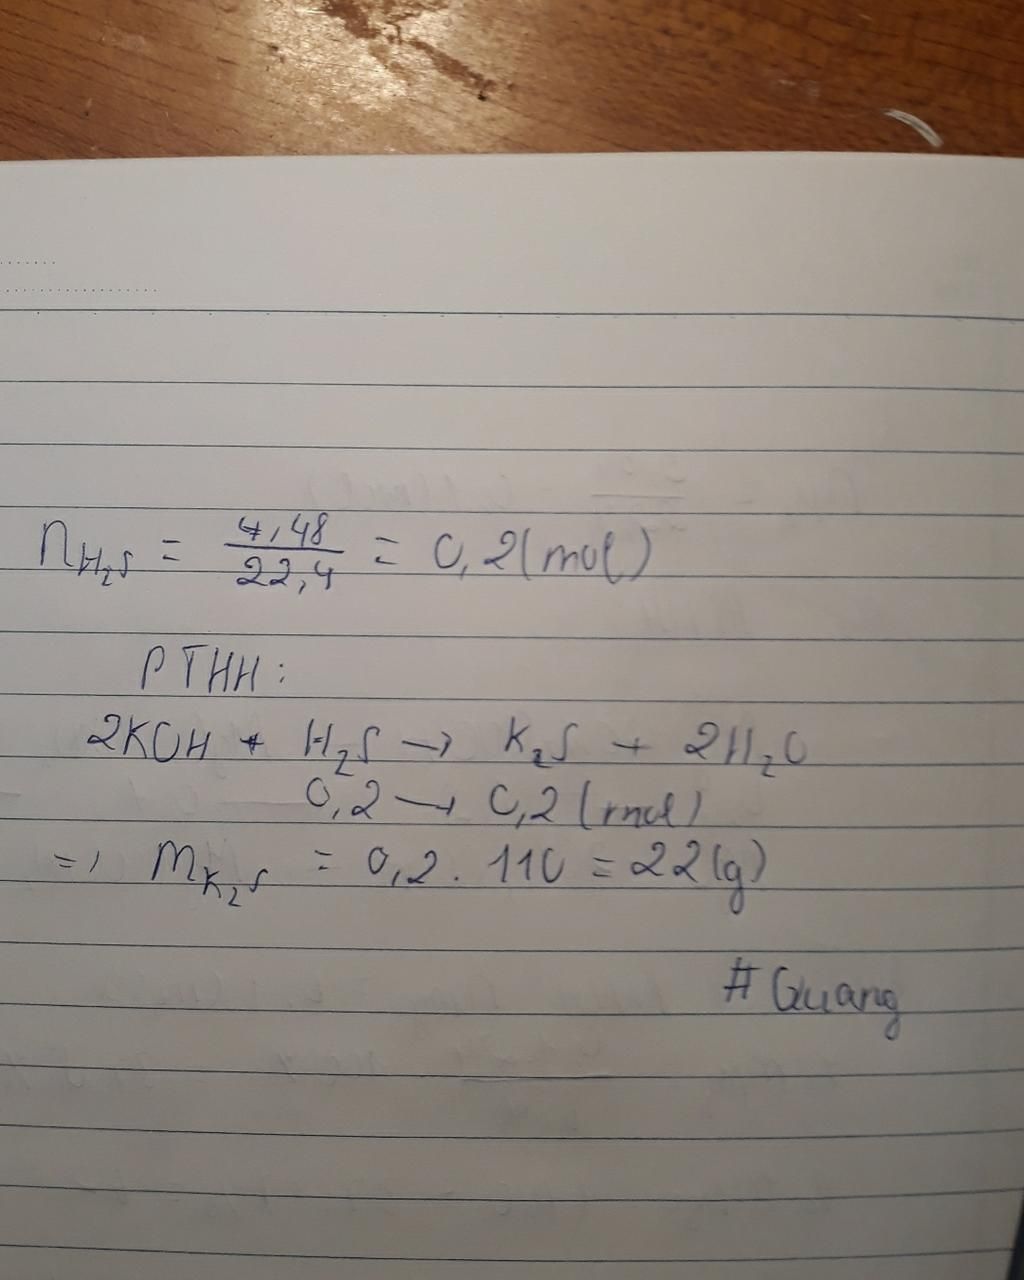 n_H₂S = 4,48/22,4 = 0,2 (mol)
PTHH:
2KOH + H₂S → K₂S + 2H₂O
0,2 → 0,2 (mol)
=) m_K₂S = 0,2 . 110 = 22 (g)
# Quang